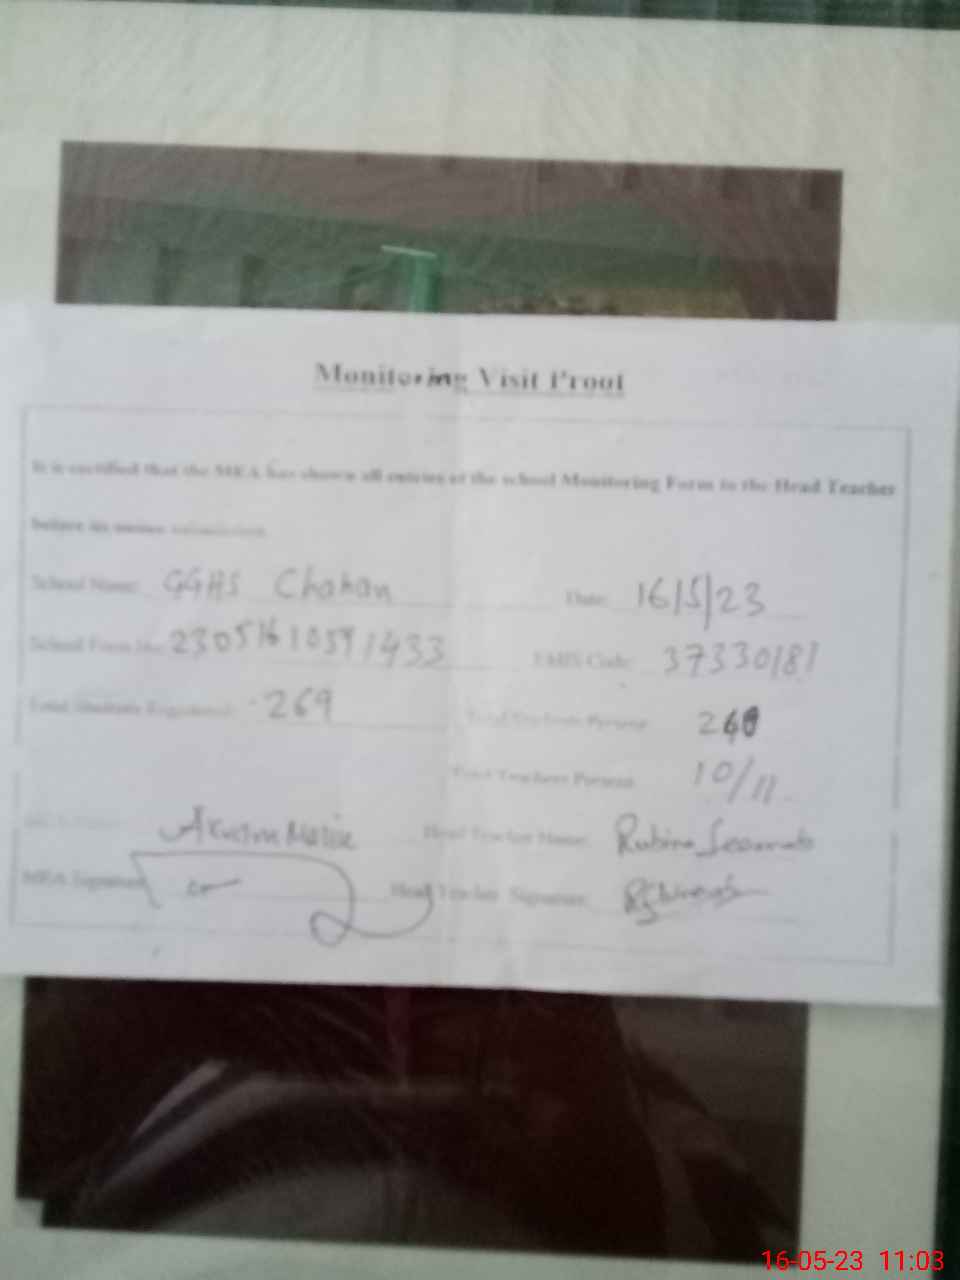 Monitoring Visit Proof
It is certified that the MEA has shown all entries of the school Monitoring Form to the Head Teacher
before its
School Name: GGHS Chohan Date: 16/5/23
School Form No. EMIS Code: 37330181
Total Students Registered: 269 Total Students Present:
Total Teachers Present: 10/11
Head Teacher Name: Rubina
MEA Signature Head Teacher Signature:
16-05-23 11:03